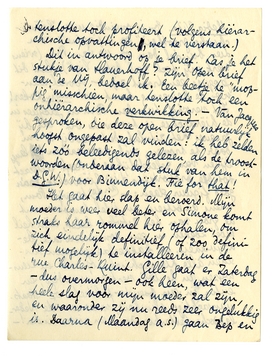 tenslotte toch profiteert (volgens hiërar-
chische opvattingen, wel te verstaan)
Dit in antwoord op je brief. Las je het
stukje van Slauerhoff? Zijn open brief
aan de Vrij, bedoel ik. Een beetje te "
" misschien, maar tenslotte toch een
onhiërarchische verkwikking. — Van Jacques
gesproken, die deze open brief natuurlijk
hoogst ongepast zal vinden: ik heb zelden
iets zóó beleedigends gelezen als de troost-
woorden (onderaan dat stuk van hem in
D.G.W.) voor Binnendijk. Fie for that!
Het gaat hier slap en beroerd. Mijn
moeder is weer veel beter en Simone komt
straks haar rommel hier ophalen, om
zich eindelijk definitief (of zoo defini-
tief mogelijk) te installeeren in de
rue Charles-Quint. Gille gaat er Zaterdag
- dus overmorgen - ook heen, wat een
heele slag voor mijn moeder zal zijn
en waaronder zij nu reeds zeer ongelukkig
is. Daarna (Maandag a.s.) gaan Bep en